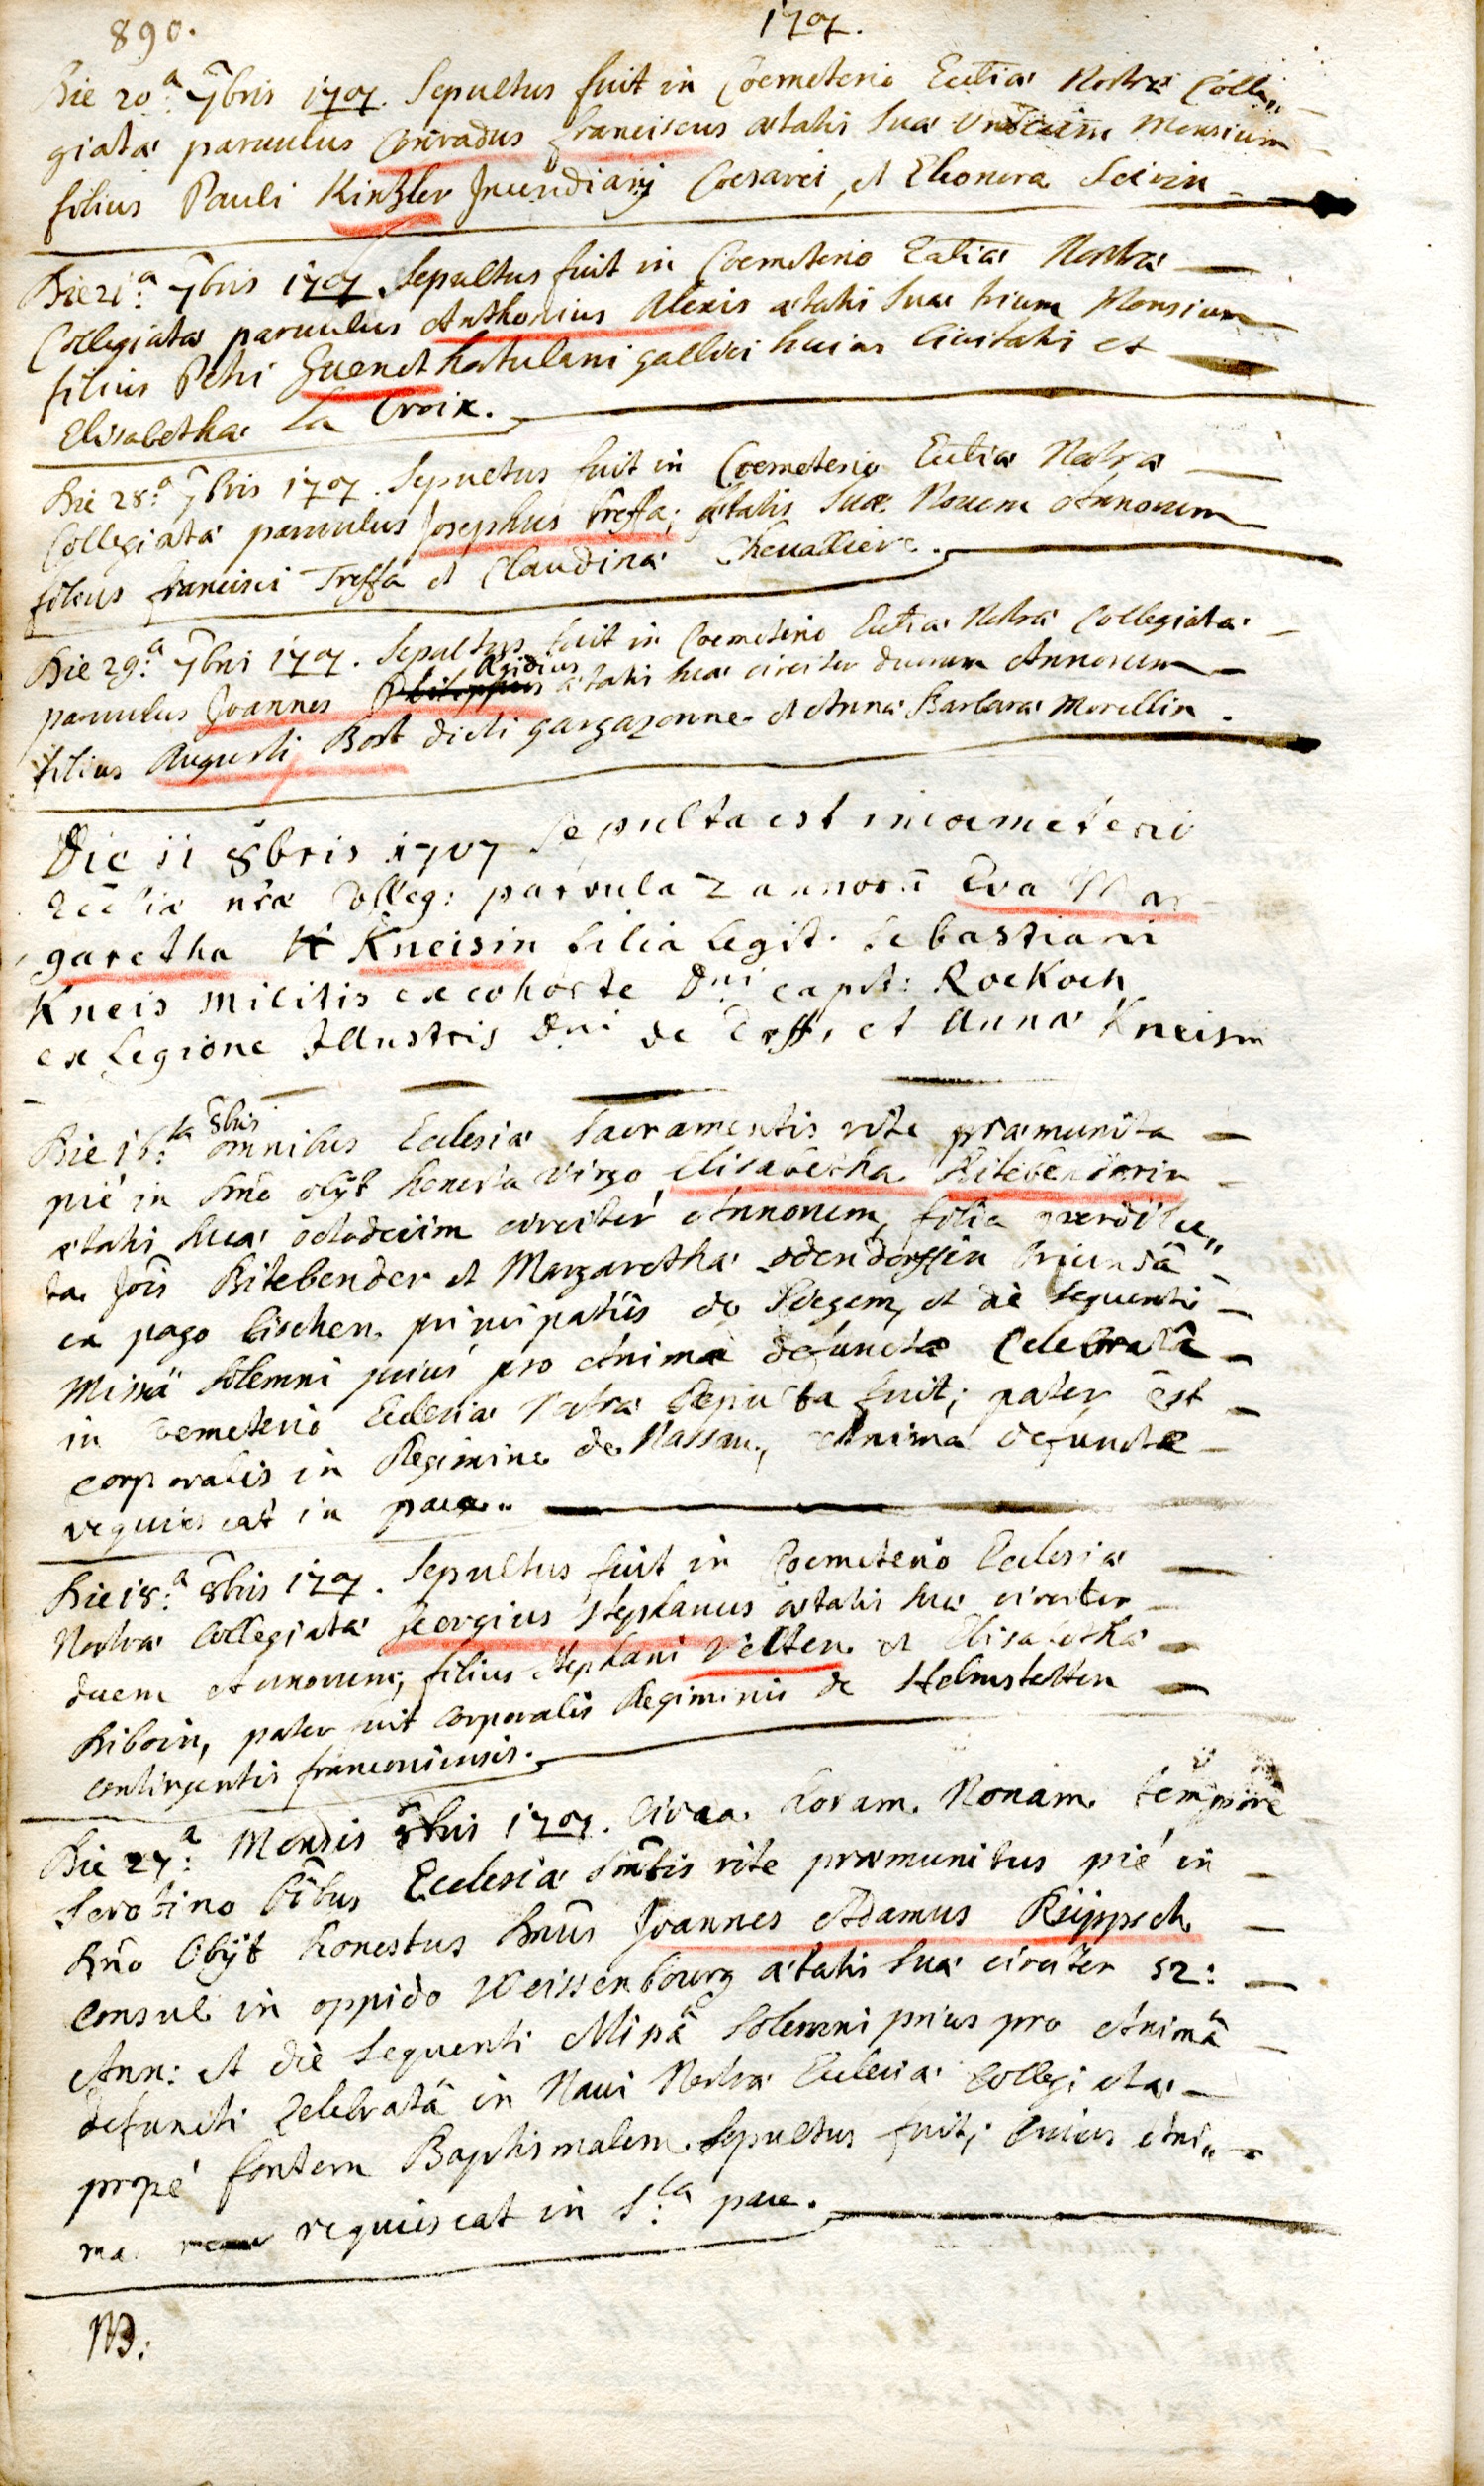 890. 1707.
Die 20.a 7bris 1707. Sepultus fuit in Coemeterio Ecclia Nostra Colle„
giata parvulus Conradus franciscus ætatis Sua Undecim Mensium
filius Pauli Kinßler Incendiarij Coesarei, et Eleonora
Die 21.a 7bris 1707. Sepultus fuit in Coemeterio Ecclia Nostra
Collegiata parvulus Anthonius Alexis ætatis Sua trium Mensium
filius Petri Guenet hortulani gallici huius Civitatis et
Elisabetha La Croix.
Die 28.a 7bris 1707. Sepultus fuit in Coemeterio Ecclia Nostra
Collegiata parvulus Josephus treffa; ætatis Sua Novem Annorum
filius francisci Treffa et Claudina Chevalliere.
Die 29.a 7bris 1707. Sepultus fuit in Coemeterio Ecclia Nostra Collegiata
Ægidius
parvulus Joannes Philippus ætatis sua circiter duorum Annorum
filius Augusti Bost dicti gargazonne et Anna Barbara Morellin.
Die 11 8bris 1707 Sepulta est in coemeterio
Eccliæ nræ Colleg: parvula 2 annorū Eva Mar
garetha K Kneisin filia legit. Sebastiani
Kneis militis ex cohorte Dni capit: Rockoch
ex Legione Illustris Dni de Erff, et Annæ Kneisin
8bris
Die 16.ta omnibus Ecclesia Sacramentis rite præmunita
pié in Dnō obijt honesta Virgo Elisabetha Bitebenderin
ætatis sua octodecim circiter Annorum, filia
ta Jois Bitebender et Margaretha odendorffin oriunda
ex pago bischen principatûs de Siegem, et die Sequenti
Missâ Solemni prius pro Anima defunctæ Celebratâ
in Cemeterio Ecclesia Nostra Sepulta fuit; pater est
corporalis in Regimine de Nassau, Anima defunctæ
requiescat in pace.
Die 18.a 8bris 1707. Sepultus fuit in Coemeterio Ecclesia
Nostra Collegiata Georgius Stephanus ætatis sua circiter
duem Annorum, filius Stephani Velten et Elisabetha
Riboin, pater fuit Corporalis Regiminis de Helmstetten
contingentis franconiensis.
Die 27.a Mensis 8bris 1707. Circa horam Nonam tempore
Serotino Oībus Ecclesia Smtis rite præmunitus pié in
Dnō Obijt honestus Dnūs Joannes Adamus Küppsch
Consul in oppido Weissenbourg ætatis Sua circiter 52:
Ann: et die Sequenti Missâ Solemni prius pro Animâ
defuncti Celebratâ in Navi Nostra Ecclesia Collegiata
propé fontem Baptismalem Sepultus fuit; Cuius Ani„
ma requiescat in S.ta pace.
NB: